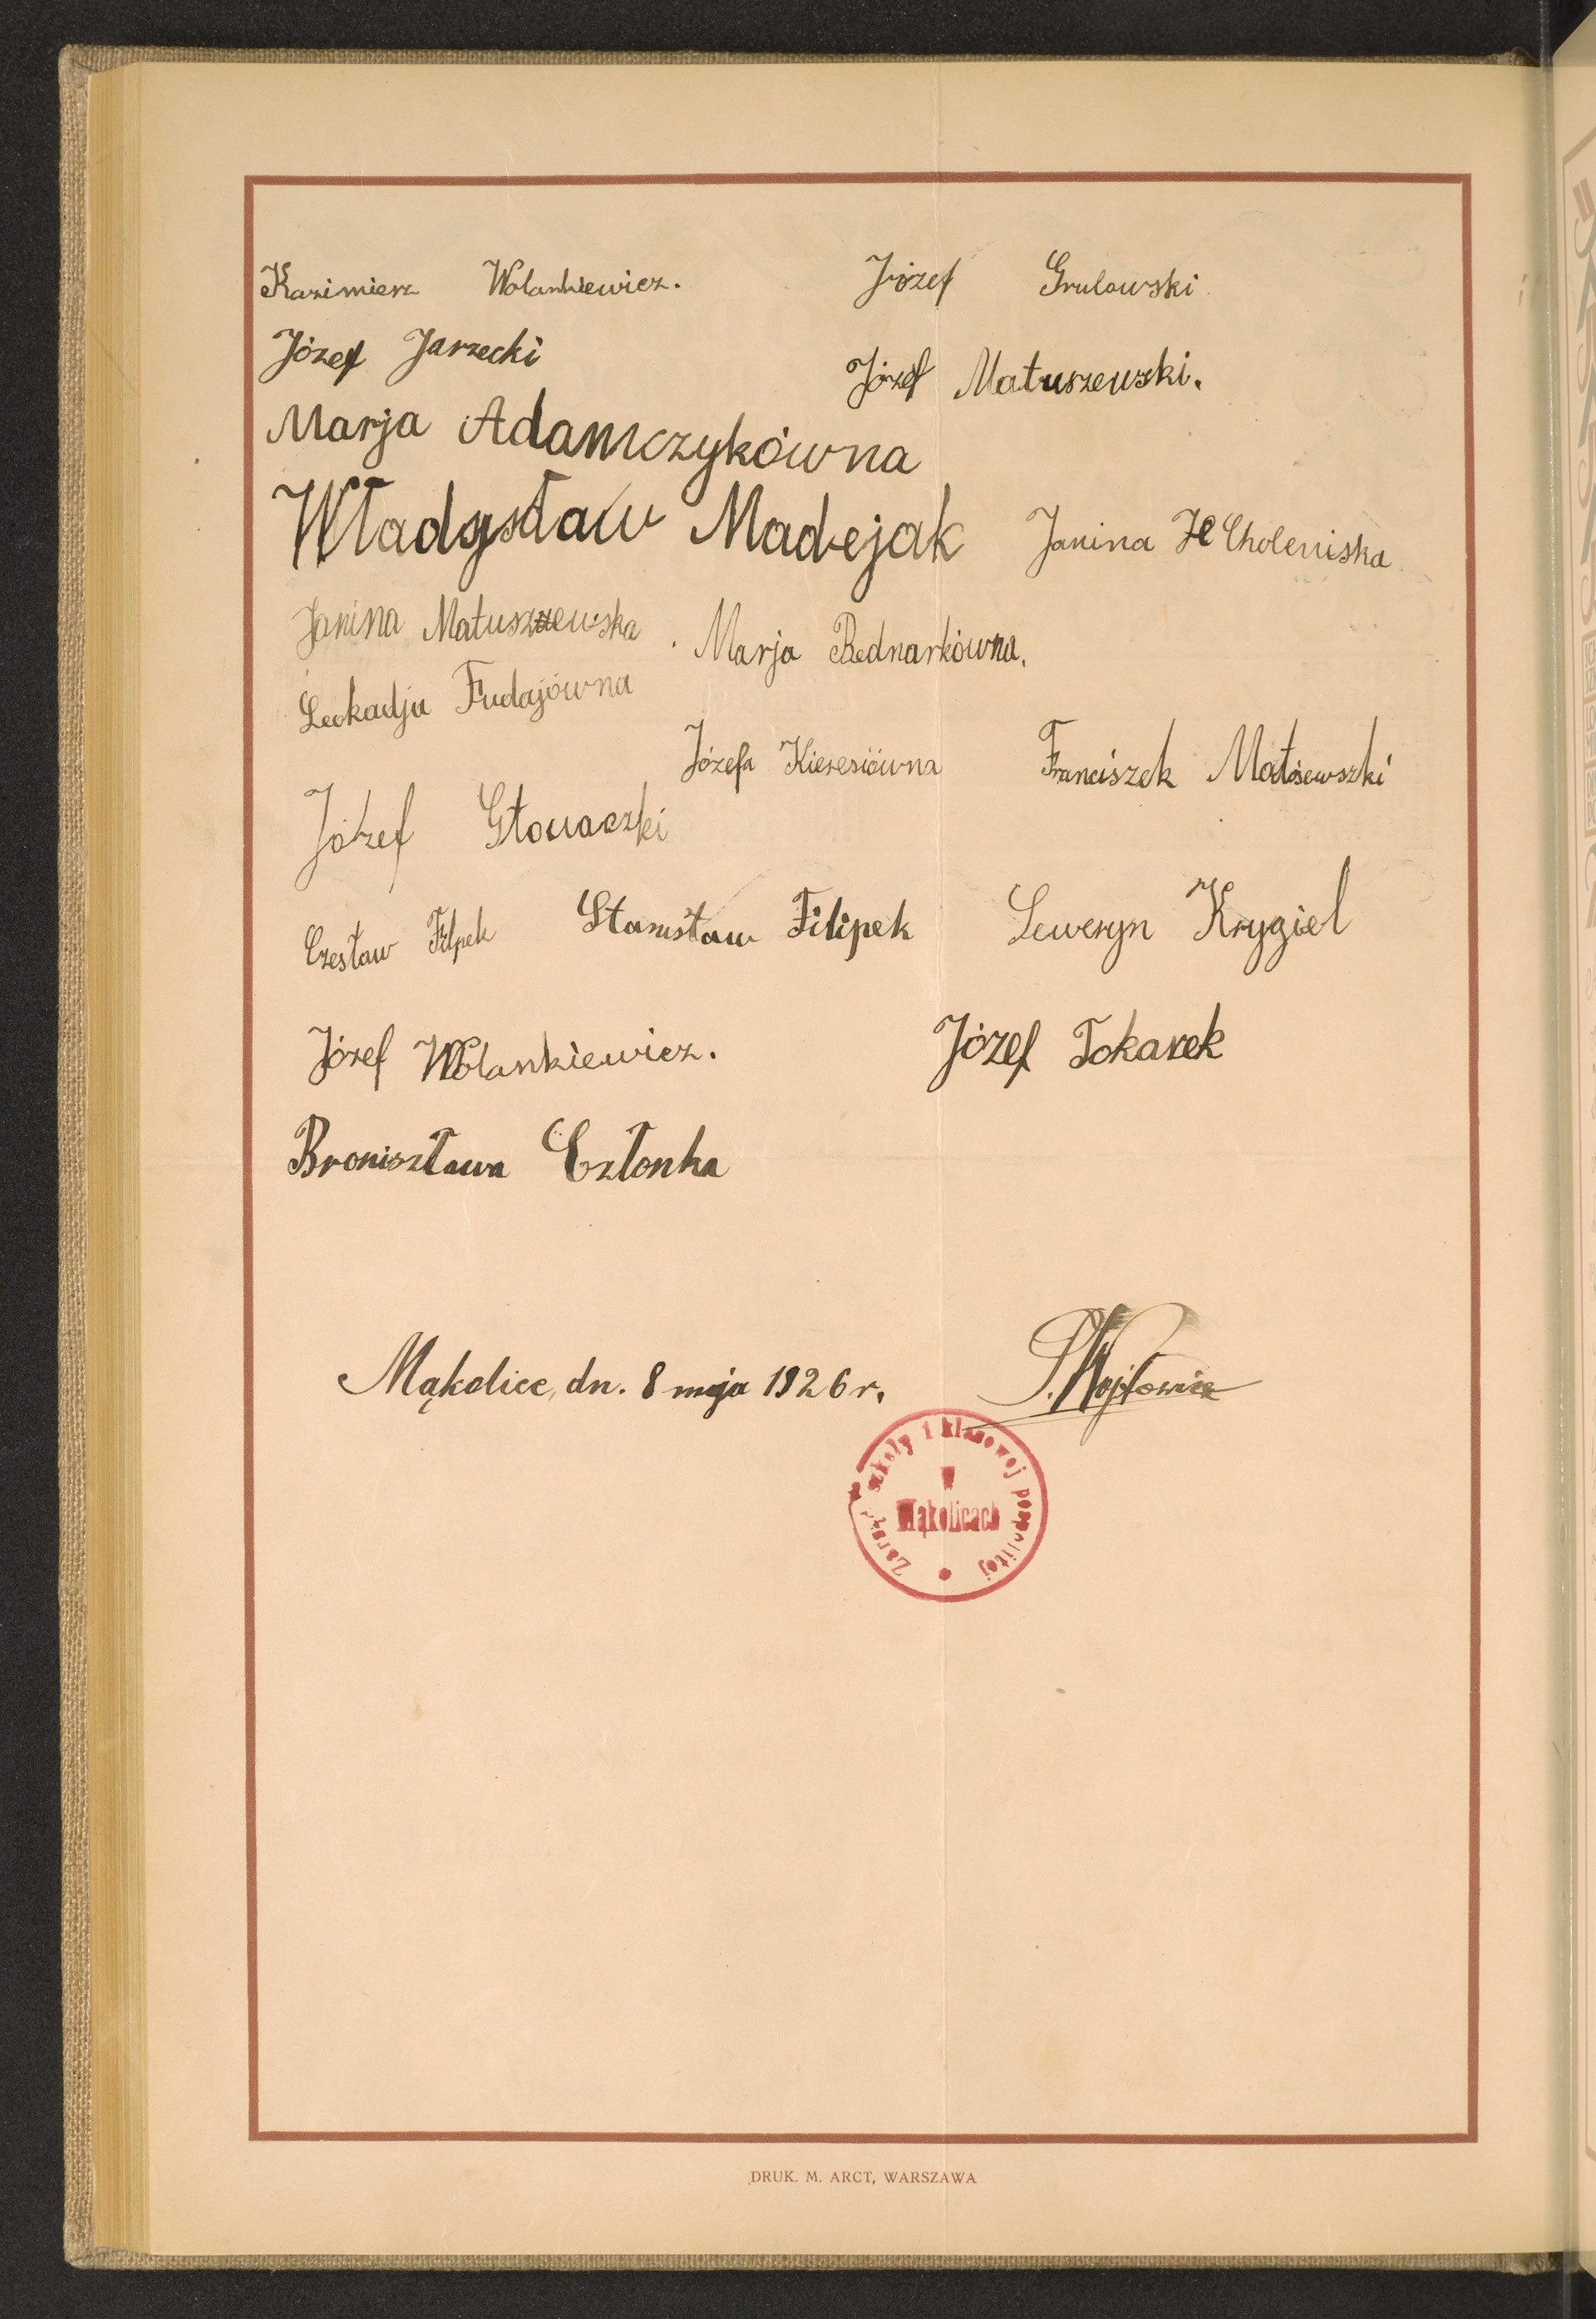 Kazimierz Wolankiewicz. Józef Grulowski
Józef Jarzecki
Józef Matuszewski.
Marja Adamczykówna
Władysław Madejak Janina Choleniska
Janina Matuszewska Marja Bednarkówna.
Leokadja Fudajówna
Józefa Kieresiówna Franciszek Matosewszki
Józef Głowaczki
Czesław Filpek Stanisław Filipek Seweryn Krygiel
Józef Wolankiewicz. Józef Tokarek
Broniszława Członka
Mąkolice, dn. 8 maja 1926 r. S. Wojtowicz
Zarząd szkoły 1 klasowej pospolitej
w
Mąkolicach
DRUK. M. ARCT, WARSZAWA